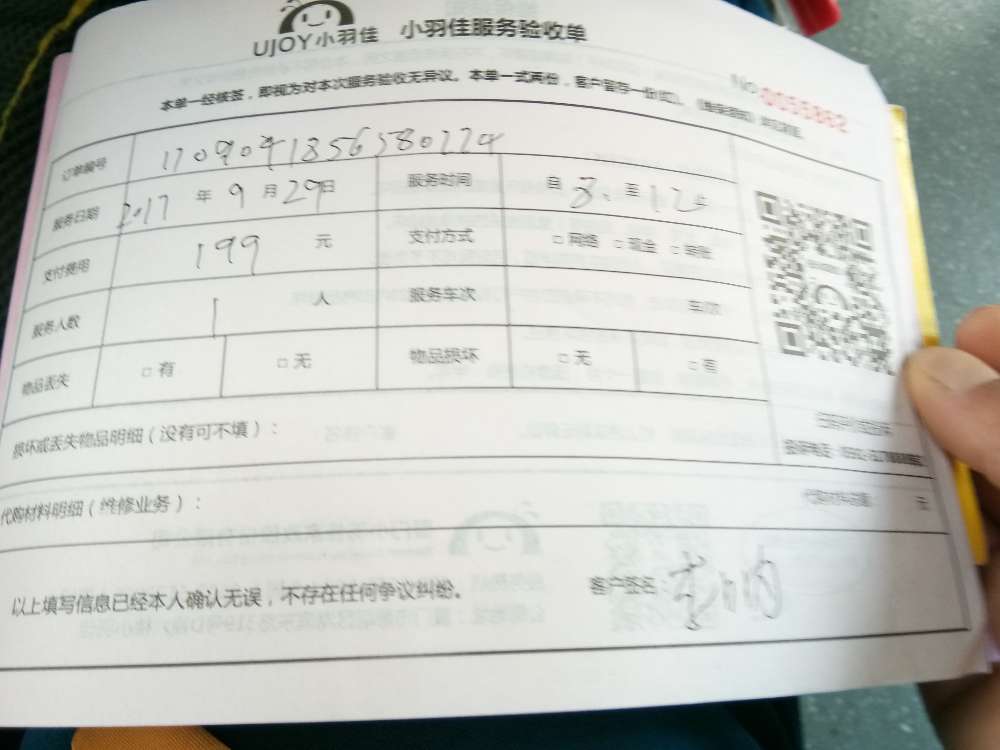 UJOY小羽佳 小羽佳服务验收单
No 0055882
本单一经核签，即视为对本次服务验收无异议。本单一式两份，客户留存一份
订单编号 1709041856580224
服务日期 2017 年 9 月 29 日 服务时间 自 8. 至 12
支付费用 199 元 支付方式 □ 网络 □ 现金 □ 转账
服务人数 1 人 服务车次 车/次
物品丢失 □ 有 □ 无 物品损坏 □ 无 □ 有
损坏或丢失物品明细（没有可不填）：
代购材料明细（维修业务）： 元
以上填写信息已经本人确认无误，不存在任何争议纠纷。 客户签名